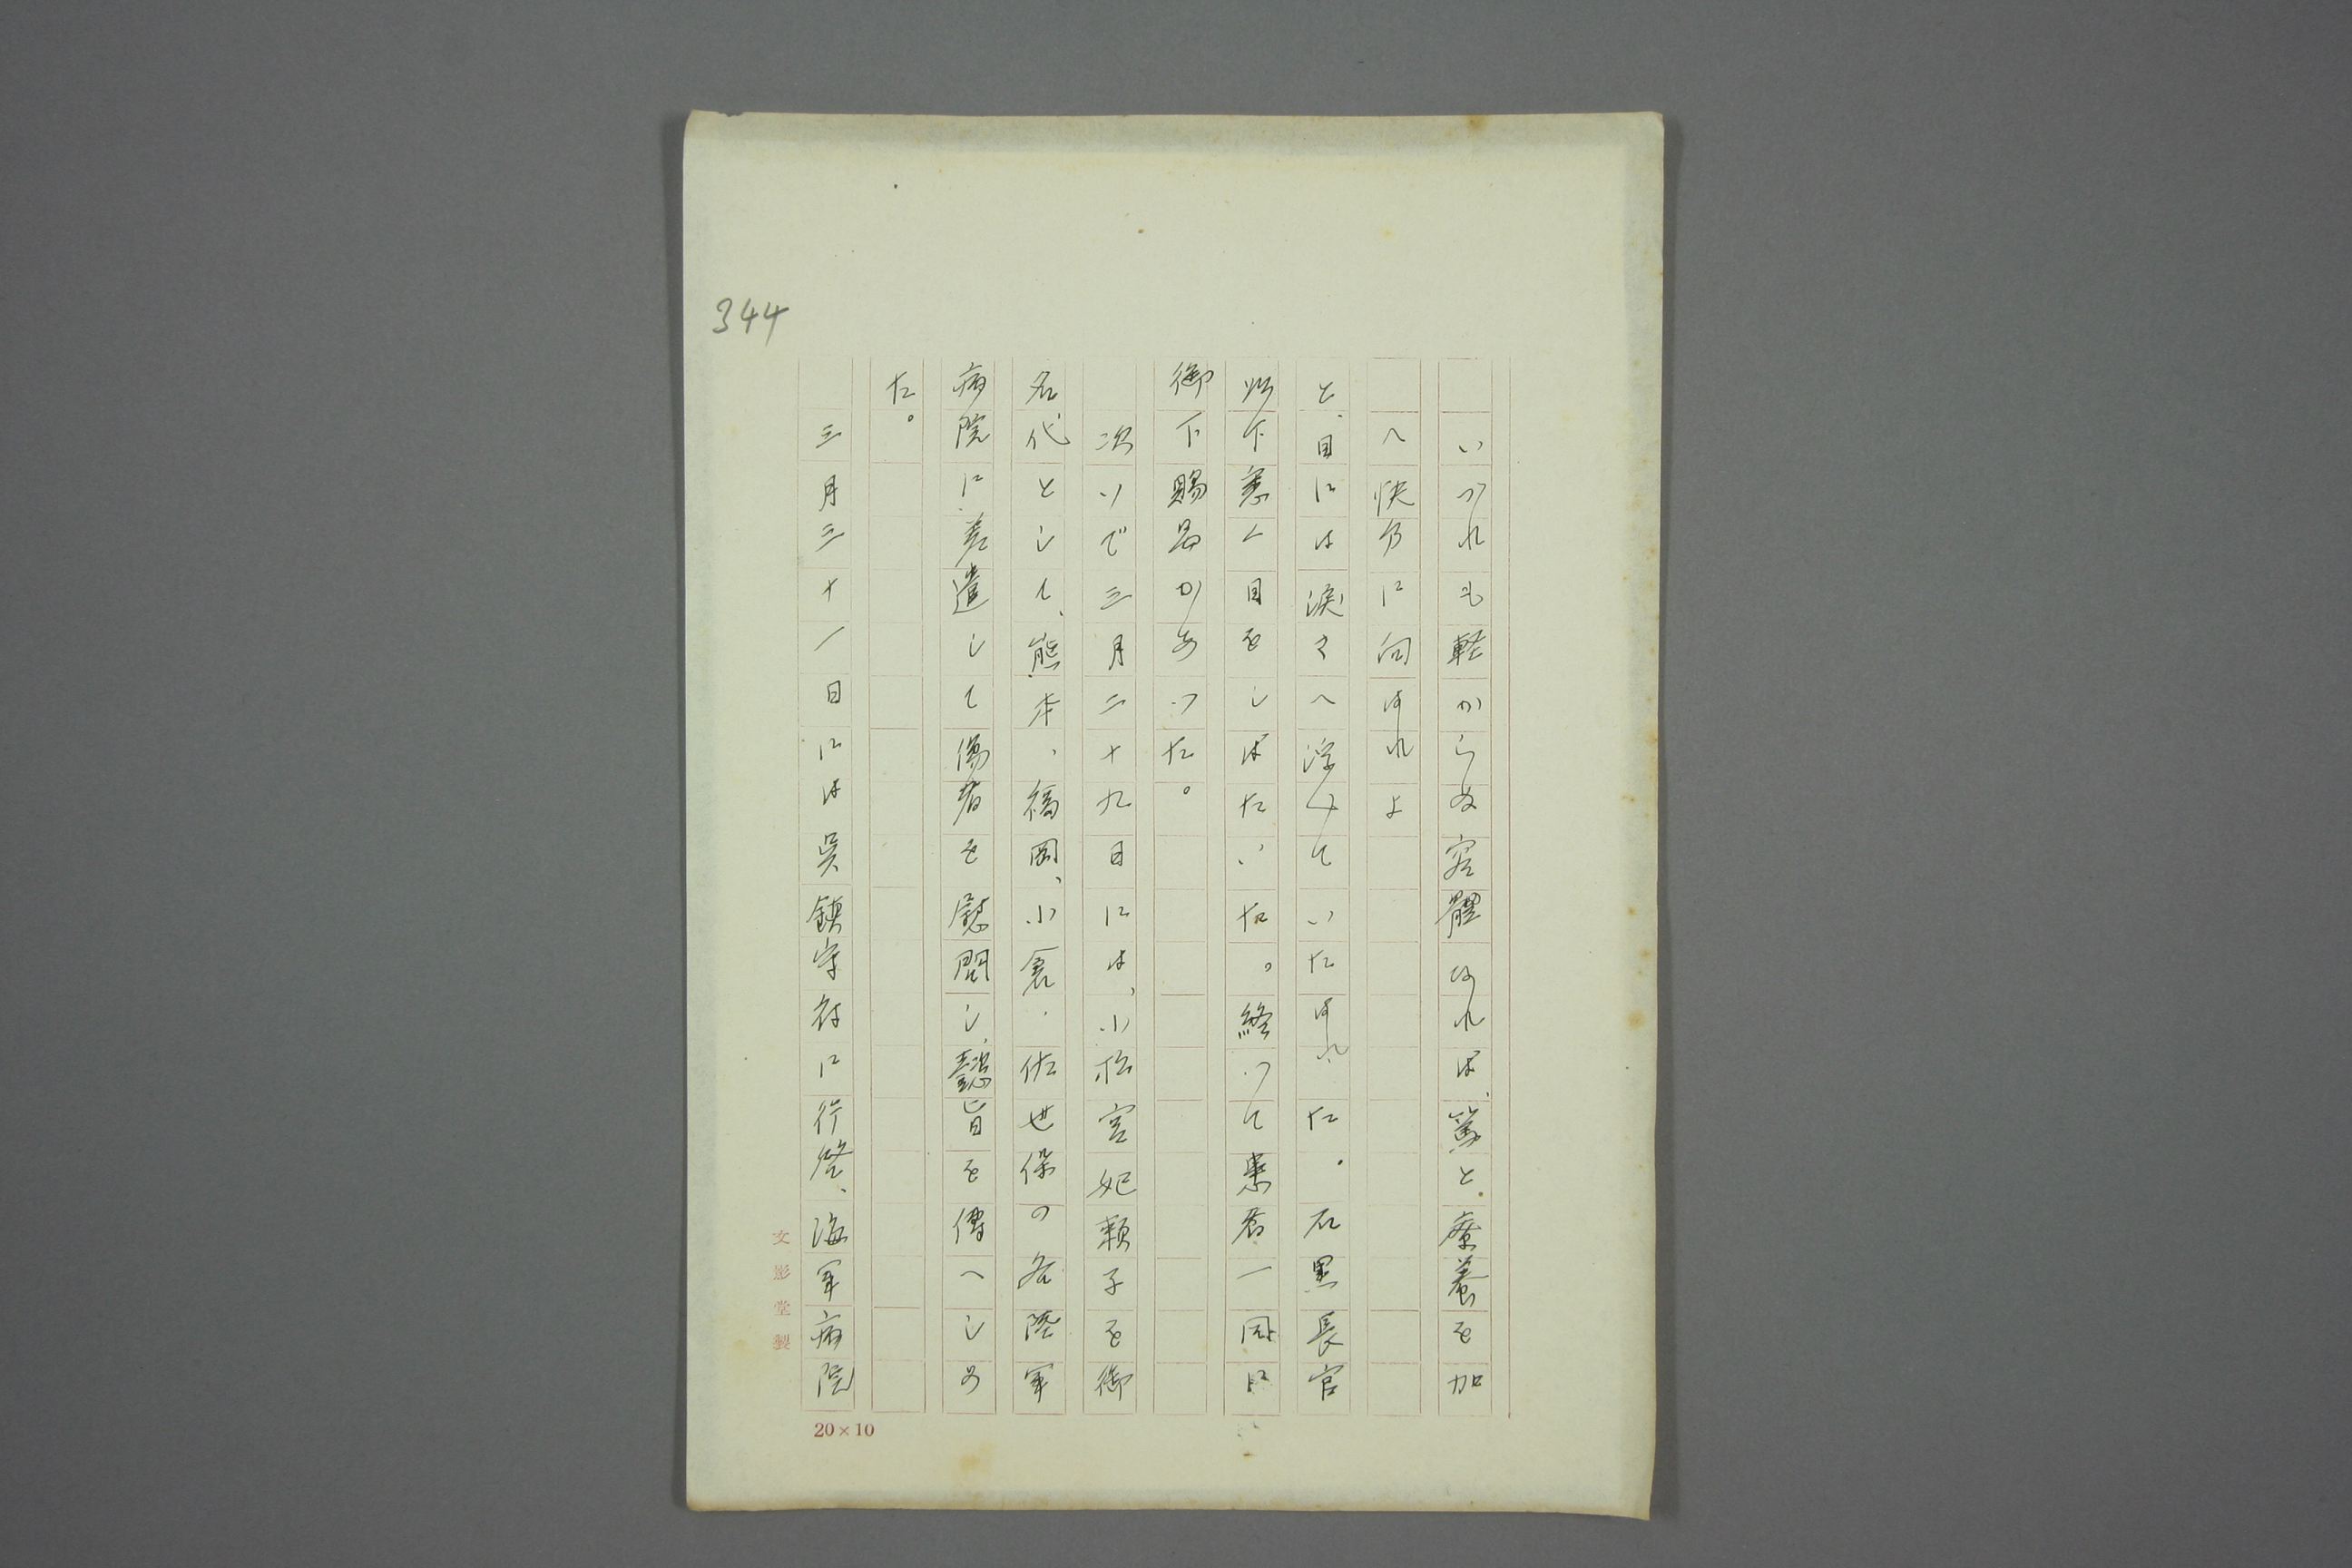 344
いづれも軽からぬ容體なれば、篤と療養を加
へ快方に向はれよ
と、目には涙さへ浮べていたはれた。石黒長官
以下悉く目をしばたいた。終って患者一同に
御下賜品があった。
次いで三月二十九日には、小松宮妃頼子を御
名代として、熊本、福岡、小倉、佐世保の各陸軍
病院に差遣して傷者を慰問し、懿旨を傳へしめ
た。
三月三十一日には呉鎮守府に行啓、海軍病院
文影堂製
20×10